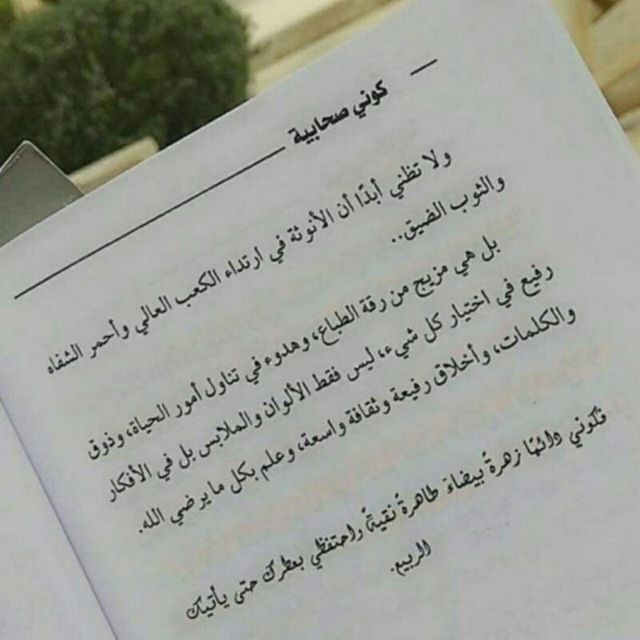 كوني صحابية
ولا تظني أبدًا أن الأنوثة في ارتداء الكعب العالي وأحمر الشفاه
والثوب الضيق..
بل هي مزيج من رقة الطباع، وهدوء في تناول أمور الحياة، وذوق
رفيع في اختيار كل شيء، ليس فقط الألوان والملابس بل في الأفكار
والكلمات، وأخلاق رفيعة وثقافة واسعة، وعلم بكل ما يرضي الله.
فكوني دائمًا زهرةً بيضاءَ طاهرةً نقيةً واحتفظي بعطرك حتى يأتيك
الربيع.